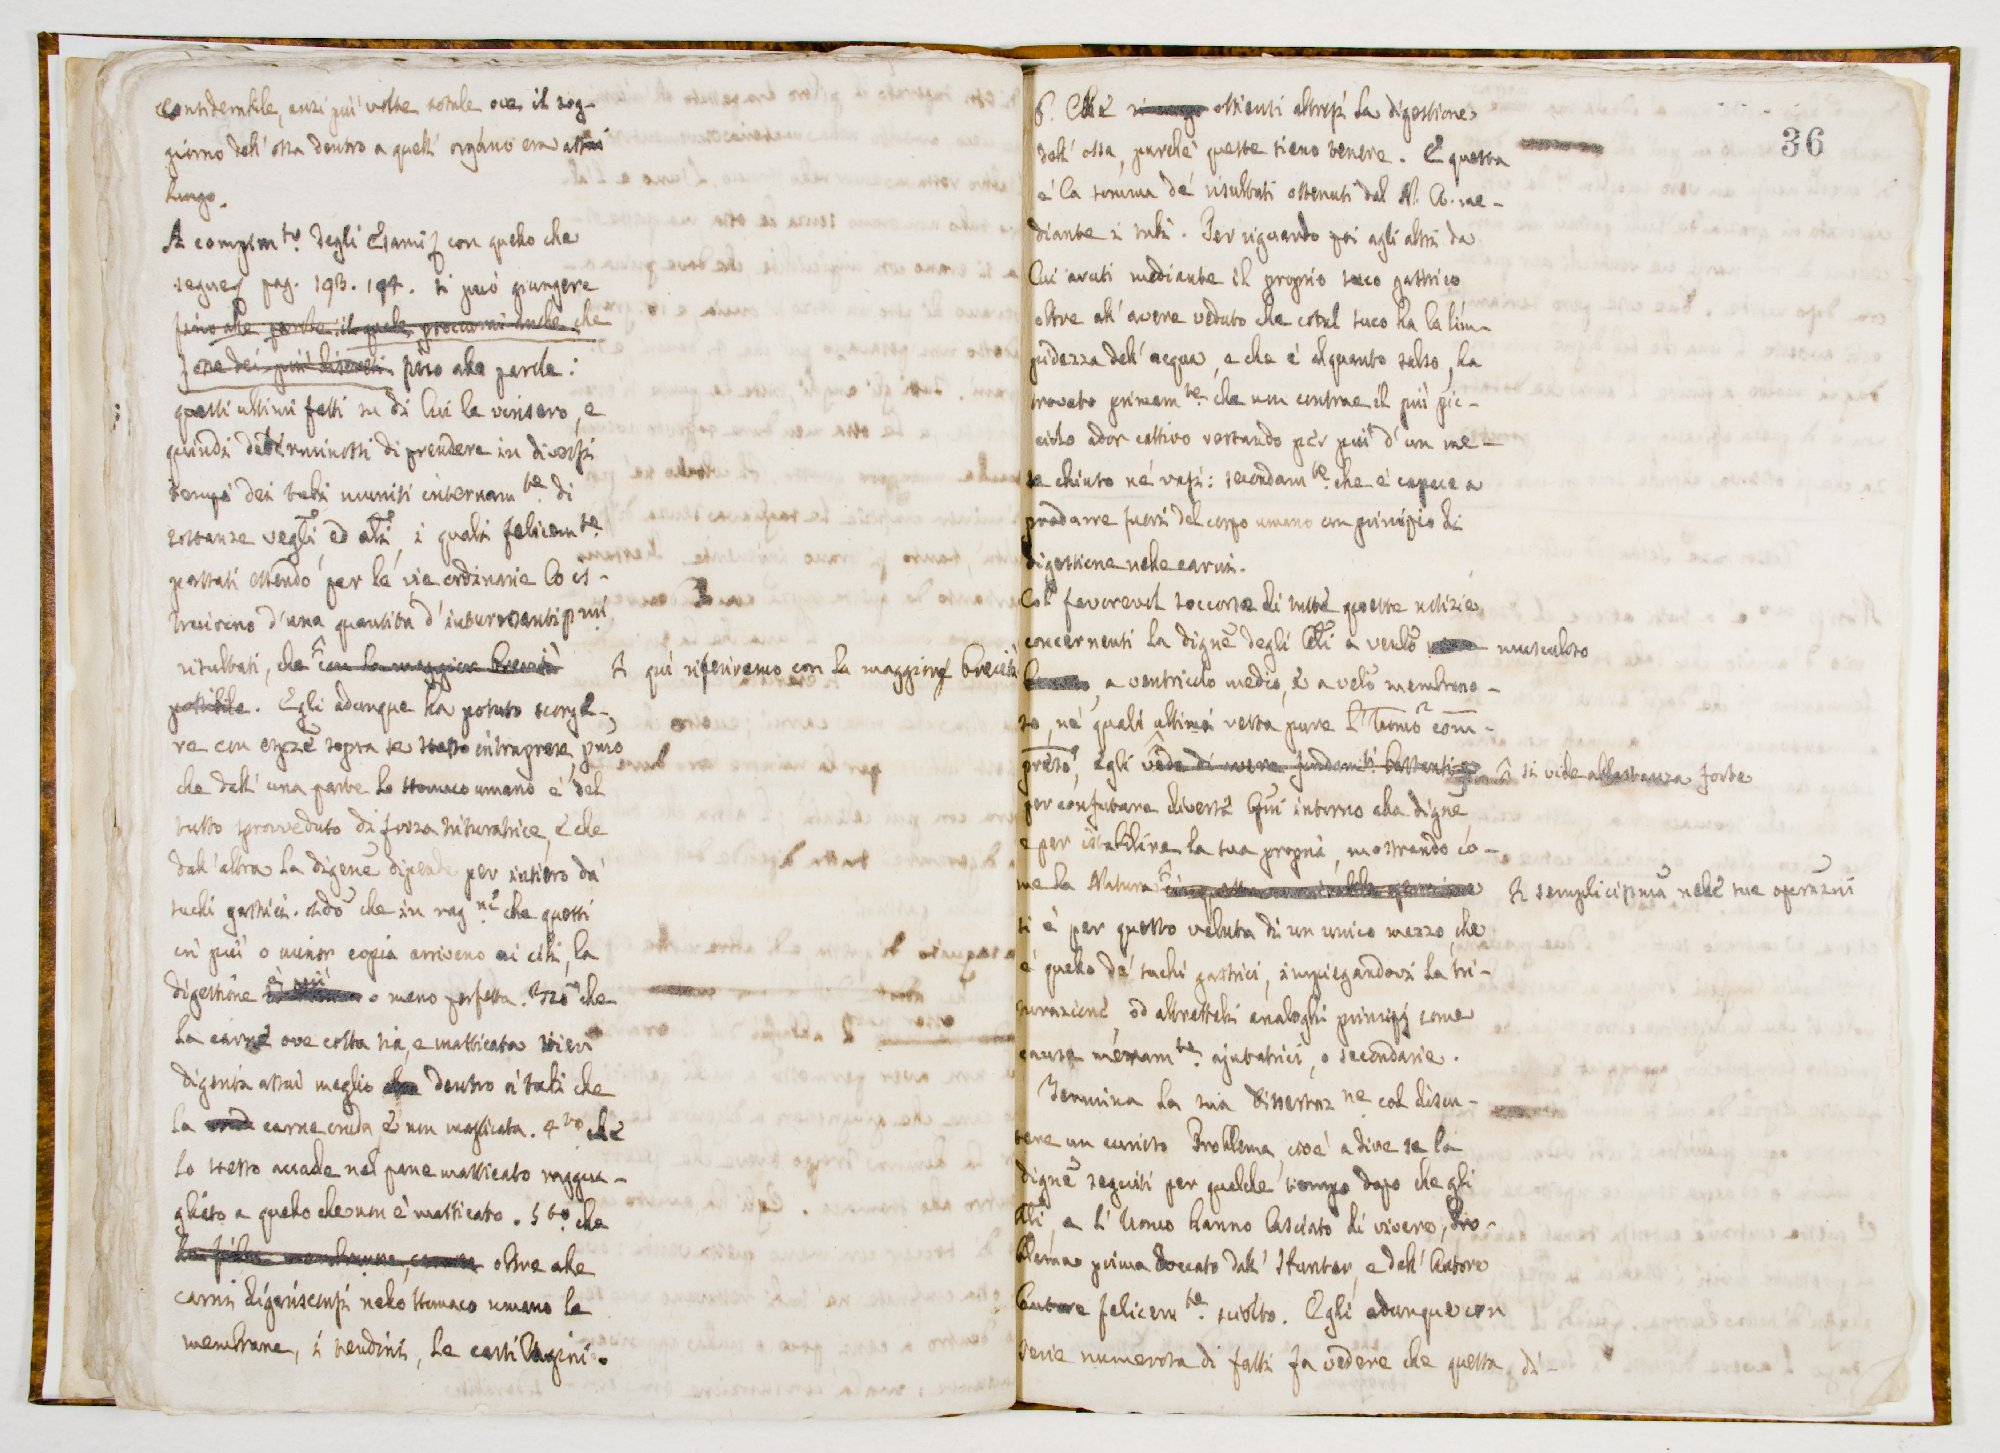 considerabile, anzi più volte totale ove il sog-
giorno dell' ossa dentro a questi organi era assai
lungo.
A compim.to degli Esami con quello che
segue pag. 193. 194. si può giungere
fino alle parole: il quale che
piso alle parole:
questi ultimi fatti su di lui le vinsero, e
quindi determinossi di prendere in diversi
tempi dei tubi muniti internam.te di
sostanze vegli ed ali, i quali felicem.te
passati essendo per le vie ordinarie lo is-
truirono d'una quantità d'interessanti più
risultati, che con la maggior brevità
qui riferiremo con la maggiore brevità
possibile. Egli adunque ha potuto scorge-
re con esperze sopra se stesso intraprese, primo
che dall' una parte lo stomaco umano è del
tutto sprovveduto di forza trituratrice, e che
dall' altra la digene dipende per intiero da'
suchi gastrici. 2do che in rag.ne che questi
in più o minor copia arrivano ai cibi, la
digestione è più o meno perfetta. 3zo che
la carne ove cotta sia, e masticata vien
digerita assai meglio dentro a' tubi che
la carne cruda, e non masticata. 4to che
lo stesso accade nel pane masticato raggua-
gliato a quello che non è masticato. 5to che
oltre alle
carni digerisconsi nello stomaco umano le
membrane, i tendini, le cartilagini.
36
6. Che ottienti altresì la digestione
dell' ossa, purchè queste sieno tenere. E questa
è la somma de' risultati ottenuti dal N. A. me-
diante i tubi. Per riguardo poi agli altri da
lui avuti mediante il proprio suco gastrico
oltre all' avere veduto che cotal suco ha la lim-
pidezza dell' acqua, e che è alquanto salso, ha
trovato primam.te che non contrae il più pic-
ciolo odor cattivo restando per più d'un me-
se chiuso ne' vasi: secondam.te che è capace a
produrre fuori del corpo umano un principio di
digestione nelle carni.
Col favorevol soccorso di tutte queste notizie
concernenti la digne degli Ali a venlo muscoloso
, a ventricolo medio, e a velo membrano-
so, ne' quali ultimi resta pure l'Uomo com-
preso, egli crede di avere fondam.ti bastanti
si vide abbastanza forte
per confutare diverse Opni intorno alla digne
e per istabilire la sua propria, mostrando co-
me la Natura
semplicissima nelle sue operazni
si è per questo valuta di un unico mezzo, che
è quello de' suchi gastrici, impiegandovi la tri-
turazione, od altrettali analoghi principj come
cause meram.te ajutatrici, o secondarie.
Termina la sua Dissertaz.ne col discu-
tere un curioso Problema, cioè a dire se la
digne seguiti per qualche tempo dopo che gli
Ali, e l'Uomo hanno lasciato di vivere, Pro-
blema prima toccato dall' Hunter, e dall' Autore
Autore felicem.te sciolto. Egli adunque con
serie numerosa di fatti fa vedere che questa di-